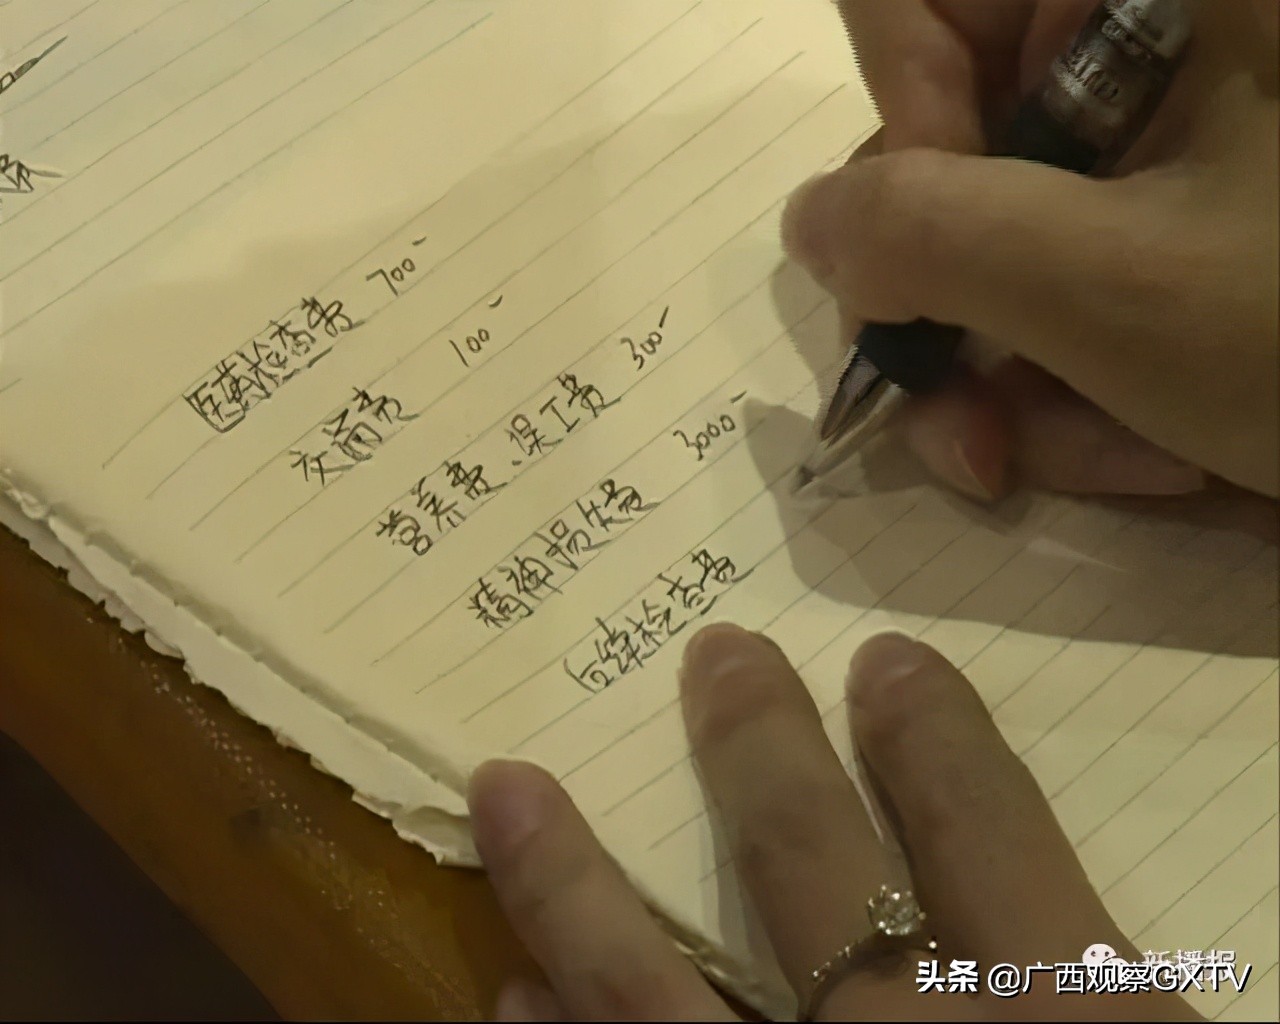 医药检查费 700-
交通费 100-
营养费、误工费 300-
精神损失费 3000-
后续检查费
新播报
头条 @广西观察GXTV